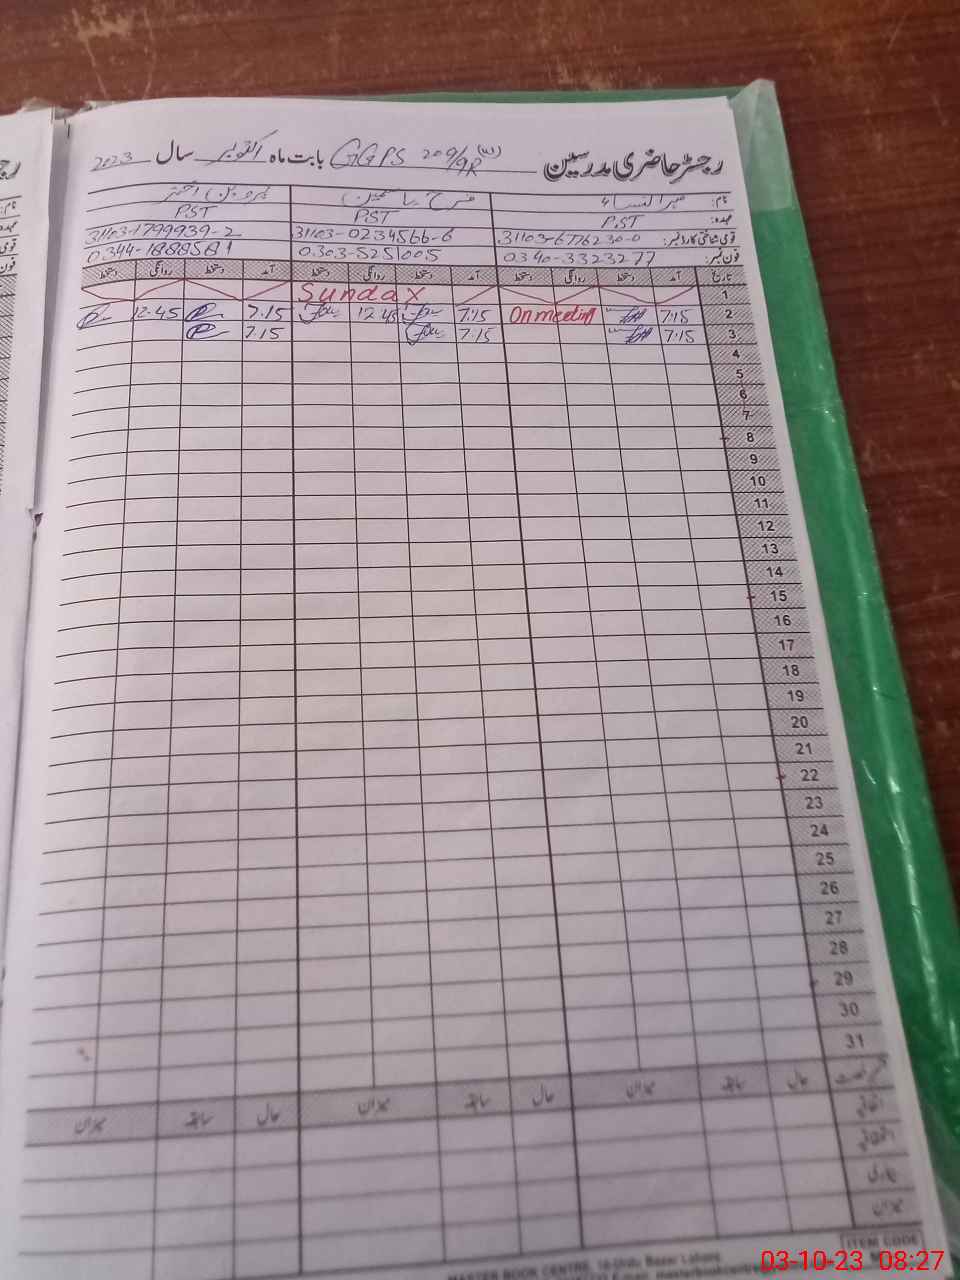 رجسٹر حاضری مدرسین GGPS 209/9R(W) بابت ماہ اکتوبر سال 2023
نام: مہرالنساء فرح یاسمین پروین اختر
عہدہ: PST PST PST
قومی شناختی کارڈ نمبر: 31103-6776230-0 31103-0234566-6 31103-1799939-2
فون نمبر: 0340-3323277 0303-5251005 0344-1888581
تاریخ آمد دستخط روانگی دستخط آمد دستخط روانگی دستخط آمد دستخط روانگی دستخط
1 Sunday
2 7.15 On meeting 7.15 12.45 7.15 12.45
3 7.15 7.15 7.15
4
5
6
7
8
9
10
11
12
13
14
15
16
17
18
19
20
21
22
23
24
25
26
27
28
29
30
31
حال سابقہ میزان حال سابقہ میزان حال سابقہ میزان
اتفاقیہ
بیماری
میزان
ITEM CODE
MASTER BOOK CENTRE, 18-Urdu Bazar Lahore
03-10-23 08:27